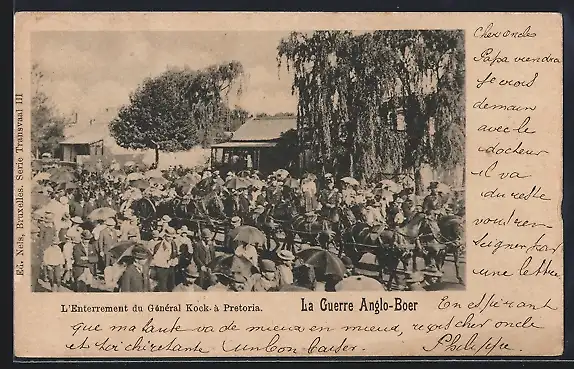 Ed. Nels, Bruxelles. Serie Transvaal III
Cher oncle
Papa viendra
te voir
demain
avec le
docteur
il va
du reste
vous ren
seigner par
une lettre
L'Enterrement du Général Kock à Pretoria.
La Guerre Anglo-Boer
En espérant
que ma tante va de mieux en mieux, reçois cher oncle
et toi chère tante un bon baiser. Philippe.